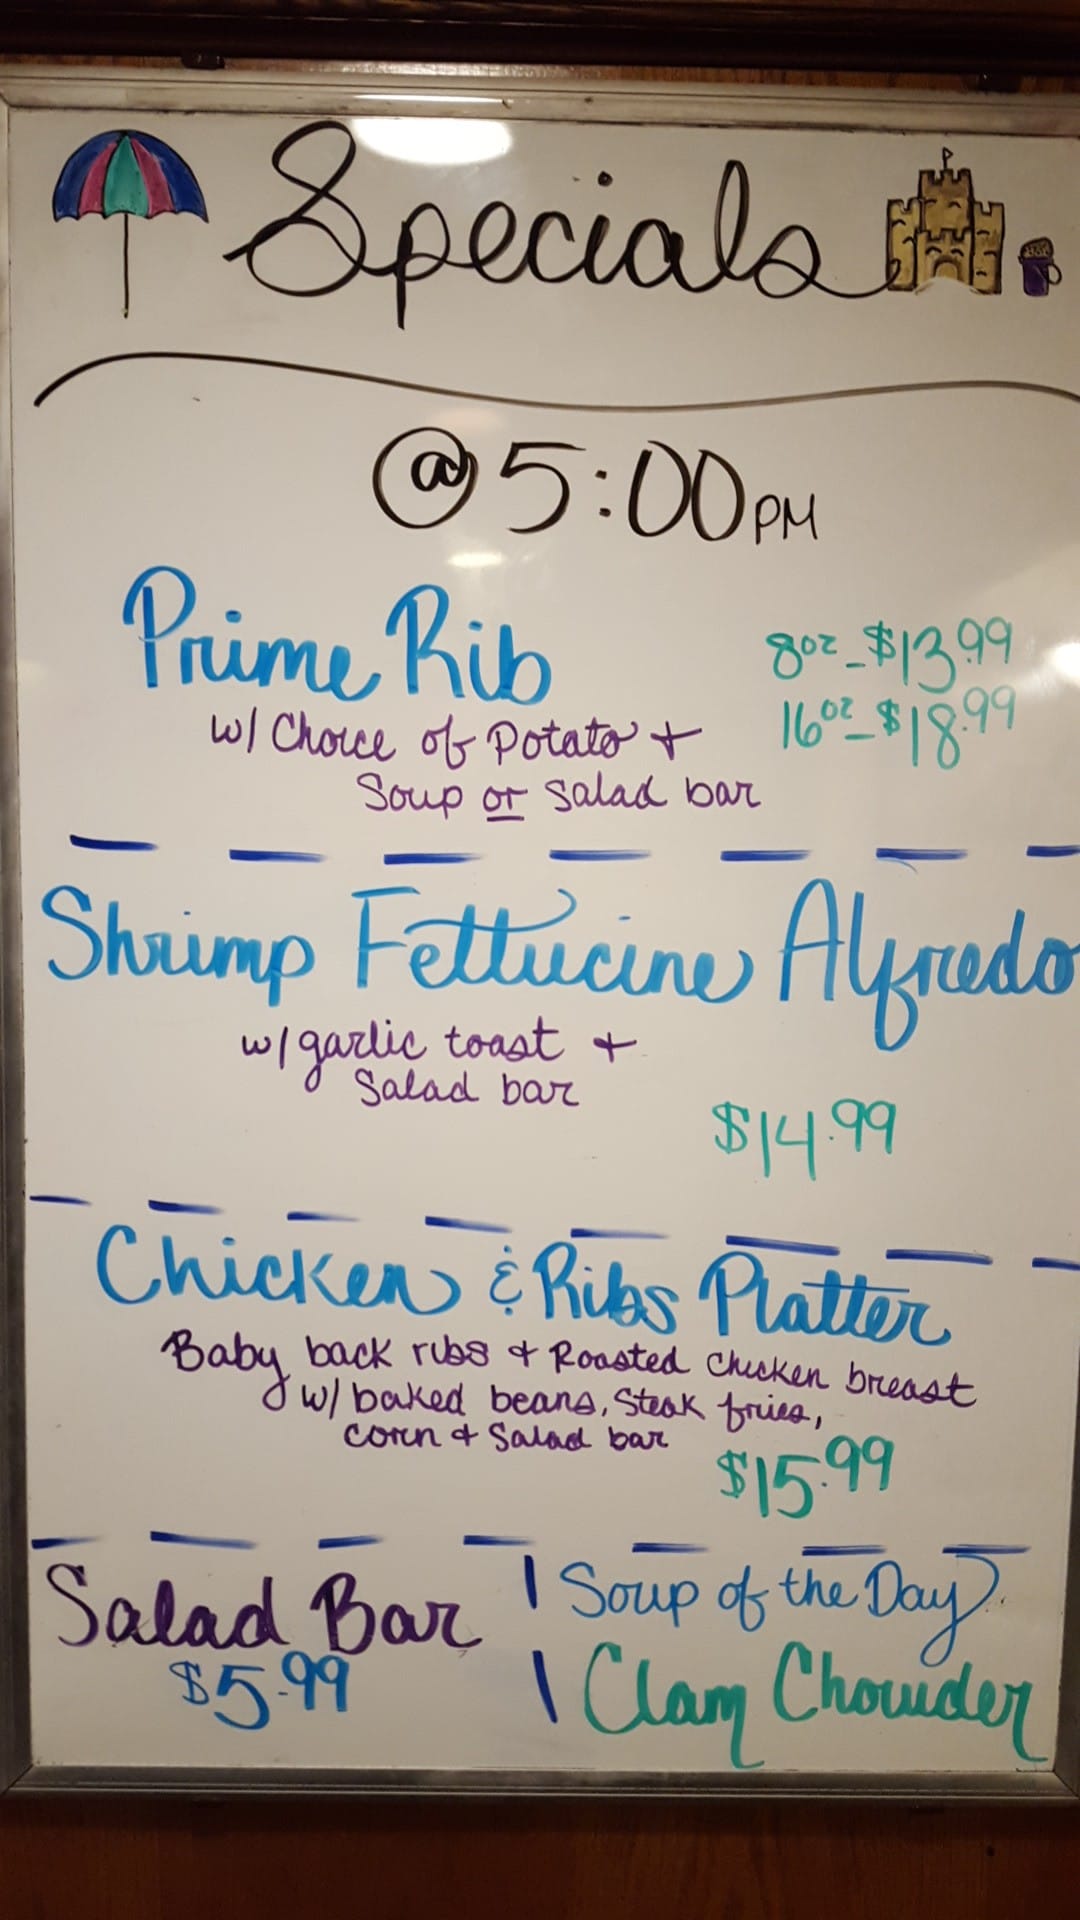 Specials
@ 5:00 PM
Prime Rib
8oz - $13.99
16oz - $18.99
w/ Choice of Potato +
Soup or Salad bar
Shrimp Fettucine Alfredo
w/ garlic toast +
Salad bar
$14.99
Chicken & Ribs Platter
Baby back ribs + Roasted Chicken breast
w/ baked beans, Steak fries,
corn + Salad bar
$15.99
Salad Bar
$5.99
Soup of the Day
Clam Chowder